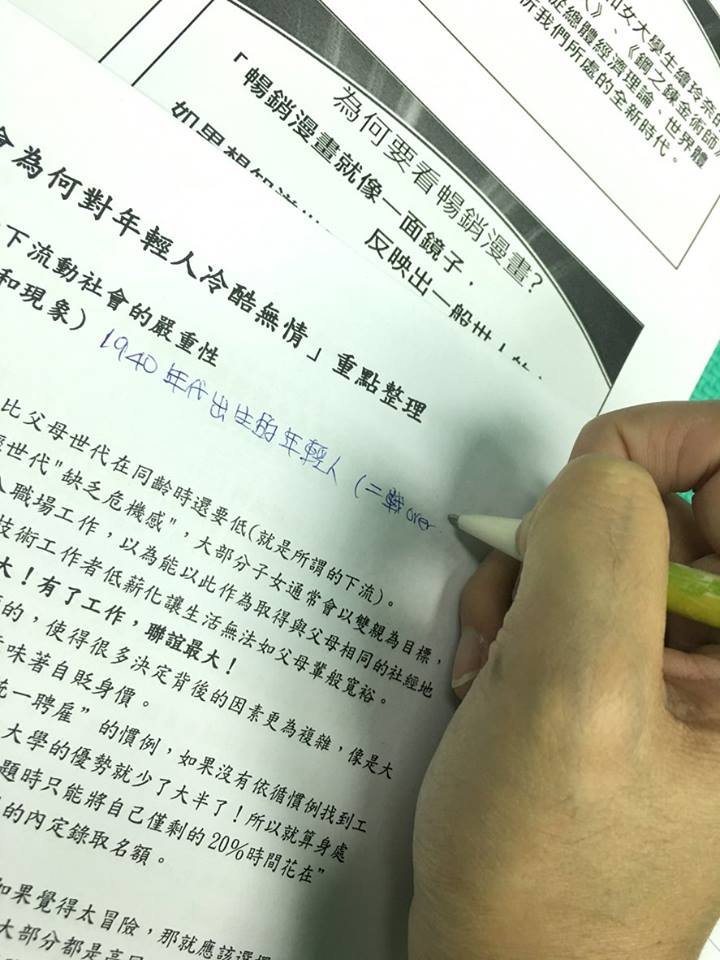 和女大學生繪玲奈
人》、《鋼之鍊金術師》
從總體經濟理論、世界體
所我們所處的全新時代。
為何要看暢銷漫畫?
「暢銷漫畫就像一面鏡子,
反映出一般世
會為何對年輕人冷酷無情」重點整理
下流動社會的嚴重性
和現象)
1940年代出生的年輕人(二戰over
比父母世代在同齡時還要低(就是所謂的下流)。
世代"缺乏危機感",大部分子女通常會以雙親為目標,
入職場工作,以為能以此作為取得與父母相同的社經地
技術工作者低薪化讓生活無法如父母輩般寬裕。
大!有了工作,聯誼最大!
的,使得很多決定背後的因素更為複雜,像是大
意味著自貶身價。
統一聘雇”的慣例,如果沒有依循慣例找到工
大學的優勢就少了大半了!所以就算身處
題時只能將自己僅剩的20%時間花在”
的內定錄取名額。
如果覺得太冒險,那就應該選
大部分都是高